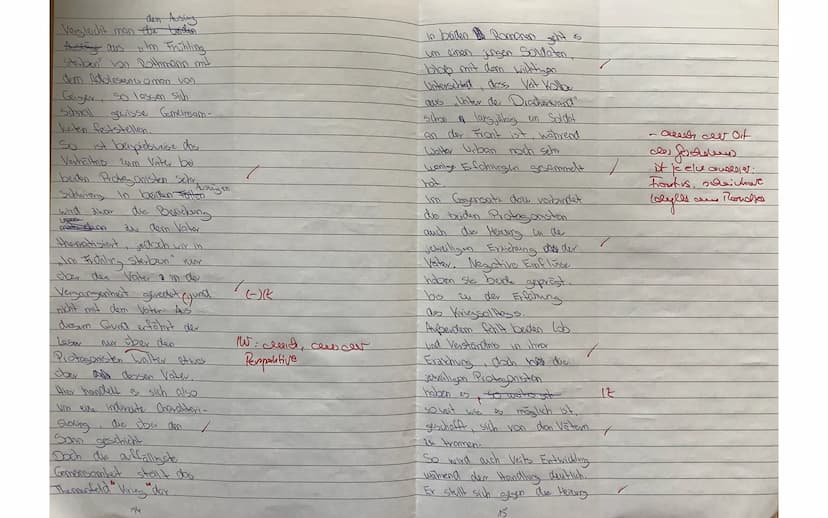 den Auszug
Vergleicht man die beiden
Auszüge aus „Im Frühling
sterben" von Rothmann mit
dem Adoleszenzroman von
Geiger, so lassen sich
schnell gewisse Gemeinsam-
keiten feststellen.
So ist beispielsweise das
Verhältnis zum Vater bei
beiden Protagonisten sehr
schwierig. In beiden Auszügen
wird zwar die Beziehung
zu dem Vater
thematisiert, jedoch wir in
„Im Frühling sterben" nur
über den Vater in der
Vergangenheit geredet (,) und
nicht mit dem Vater. Aus
diesem Grund erfährt der
Leser nur über den
Protagonisten Walter etwas
über dessen Vater.
Hier handelt es sich also
um eine indirekte Charakteri-
sierung, die über den
Sohn geschieht.
Doch die auffälligste
Gemeinsamkeit stellt das
Themenfeld "Krieg" dar
14
(-) R
W:
Perspektive
In beiden Romanen geht es
um einen jungen Soldaten,
bloß mit dem wichtigen
Unterschied, dass Veit Kolbe
aus „Unter der Drachenwand"
schon langjährig ein Soldat
an der Front ist, während
Walter Urban noch sehr
wenige Erfahrungen gesammelt
hat.
Im Gegensatz dazu verbindet
die beiden Protagonisten
auch die Meinung zu der
jeweiligen Erziehung der
Väter. Negative Einflüsse
haben sie beide geprägt,
bis zu der Erfahrung
des Kriegsalltags.
Außerdem fehlt beiden Lob
und Verständnis in ihrer
Erziehung, doch die
jeweiligen Protagonisten
haben es, so weit es
soweit wie es möglich ist,
geschafft, sich von den Vätern
zu trennen.
So wird auch Veits Entwicklung
während der Handlung deutlich.
Er stellt sich gegen die Meinung
15
- auch der Ort
des Geschehens
ist je ein anderer:
Front vs. scheinbare
Idylle am Mondsee
R